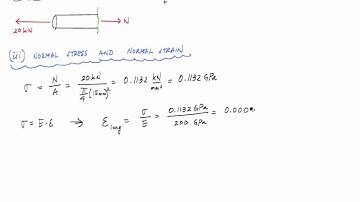 20kN N
(ii) NORMAL STRESS AND NORMAL STRAIN
σ = N/A = 20 kN / π/4 (15mm)² = 0.1132 kN/mm² = 0.1132 GPa
σ = E·ε → ε long = σ/E = 0.1132 GPa / 200 GPa = 0.000